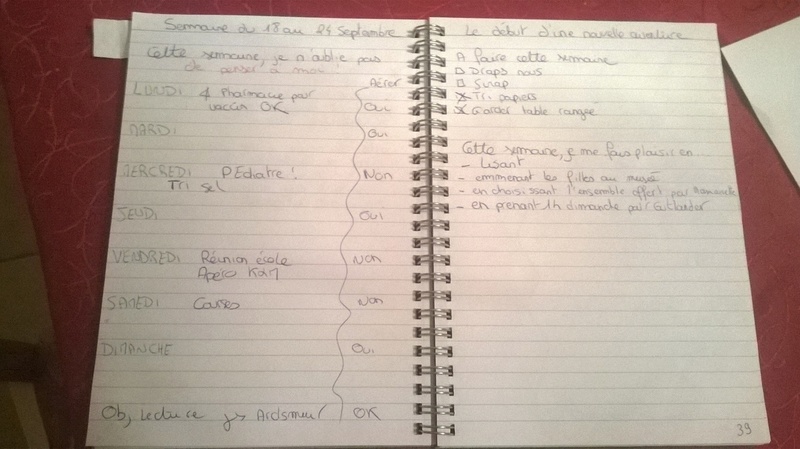 Semaine du 18 au 24 Septembre
Cette semaine, je n'oublie pas
de penser à moi!
Aérer
LUNDI Pharmacie pour Oui
vaccin OK
MARDI Oui
MERCREDI PEdiatre! Non
Tri sel
JEUDI Oui
VENDREDI Réunion école Non
Apéro
SAMEDI Courses Non
DIMANCHE Oui
Obj Lecture OK
Le début d'une nouvelle aventure
A faire cette semaine
Draps nous
Swap
Tri papiers
Garder table rangée
Cette semaine, je me fais plaisir en...
- Lisant
- emmenant les filles au musée
- en choisissant l'ensemble offert par
- en prenant 1h dimanche pour Outlander
39